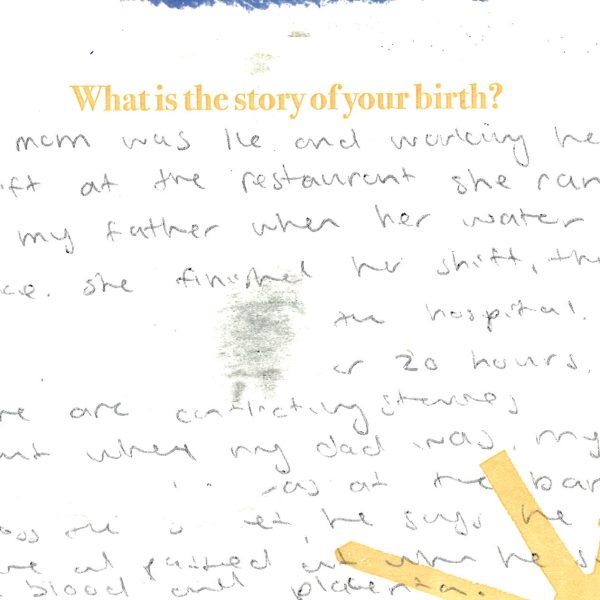 What is the story of your birth?
mom was 16 and working he
ift at the restaurant she ran
my father when her water
ke. she finished her shift, the
the hospital.
r 20 hours.
re are conflicting stories
out where my dad was. my
as at the bar
oss the s et, he says he
re and fainted when he s
blood and placenta.